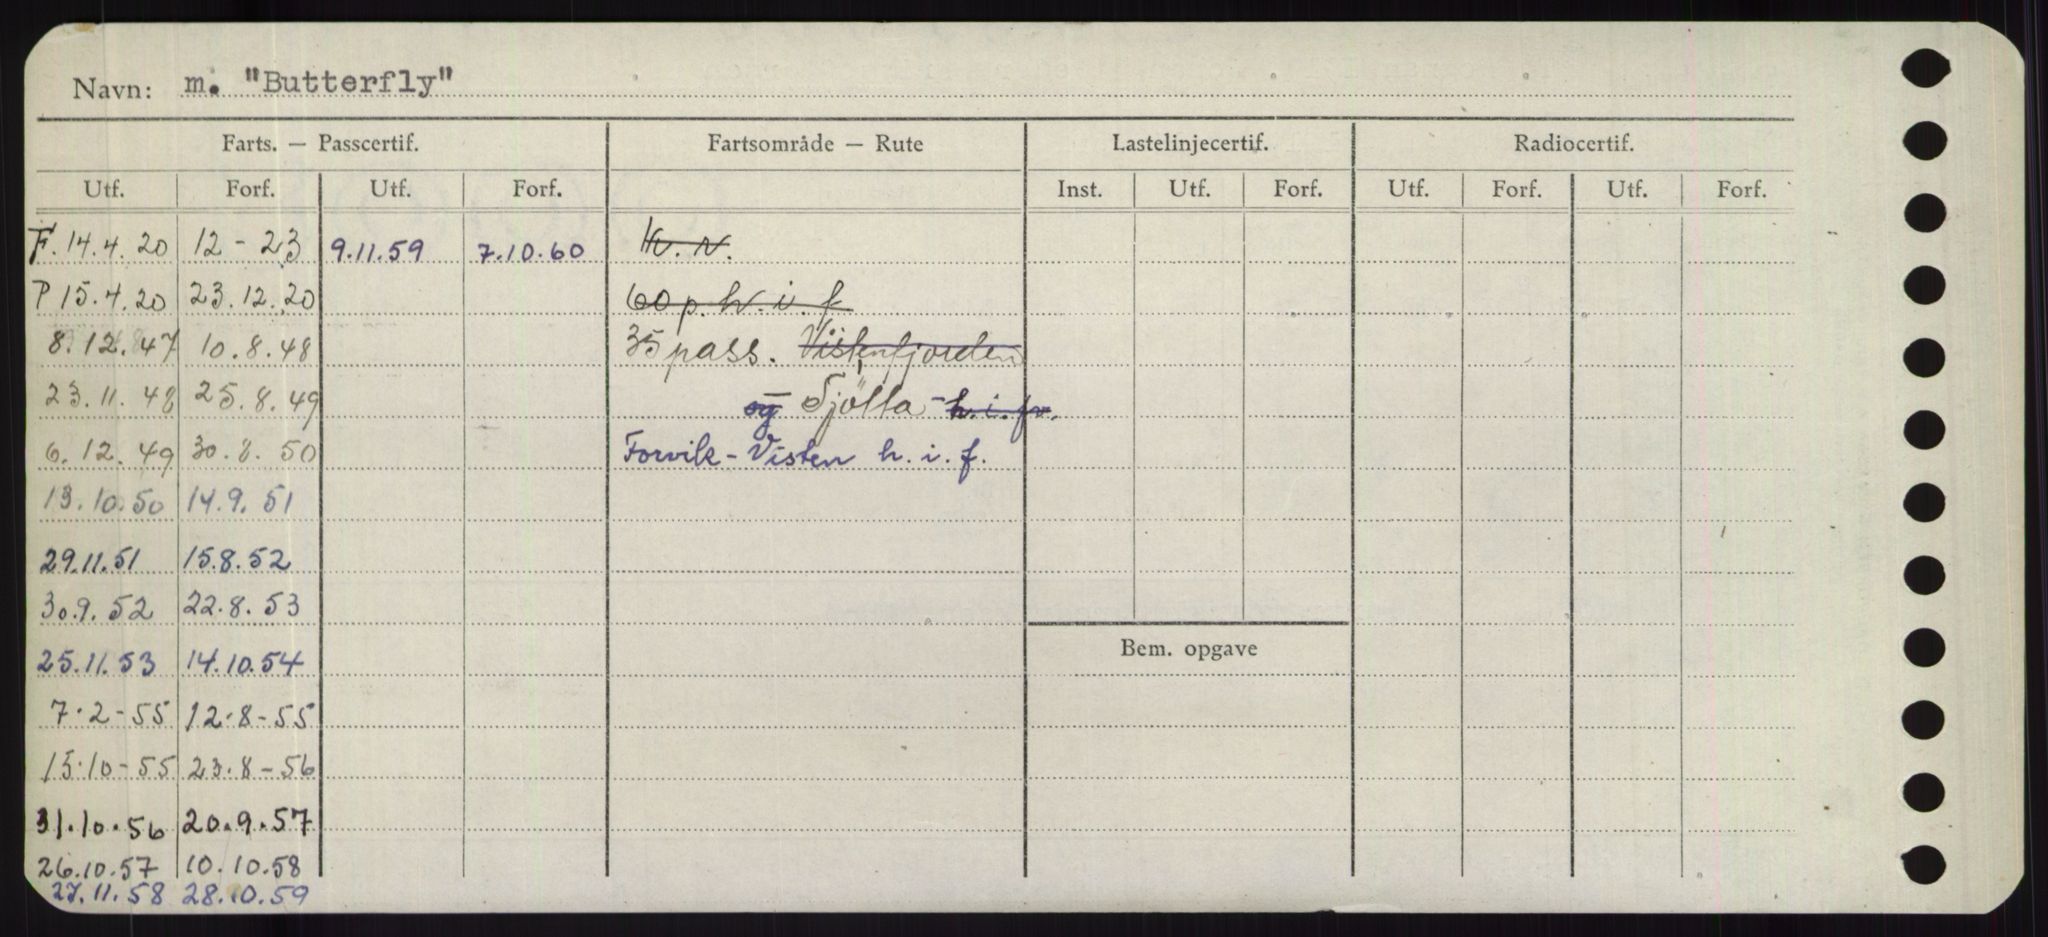 Navn: m. "Butterfly"
Farts. — Passcertif. Fartsområde — Rute Lastelinjecertif. Radiocertif.
Utf. Forf. Utf. Forf. Inst. Utf. Forf. Utf. Forf. Utf. Forf.
F. 14.4.20 12-23 9.11.59 7.10.60
P 15.4.20 23.12.20 60 p. h. i. f
8.12.47 10.8.48 35 pass. Vistenfjorden
23.11.48 25.8.49 og Sjølla - h.i.fr.
6.12.49 30.8.50 Forvik - Visten h. i. f.
13.10.50 14.9.51
29.11.51 15.8.52
30.9.52 22.8.53
Bem. opgave
25.11.53 14.10.54
7.2-55 12.8-55
15.10-55 23.8-56
31.10.56 20.9.57
26.10.57 10.10.58
27.11.58 28.10.59